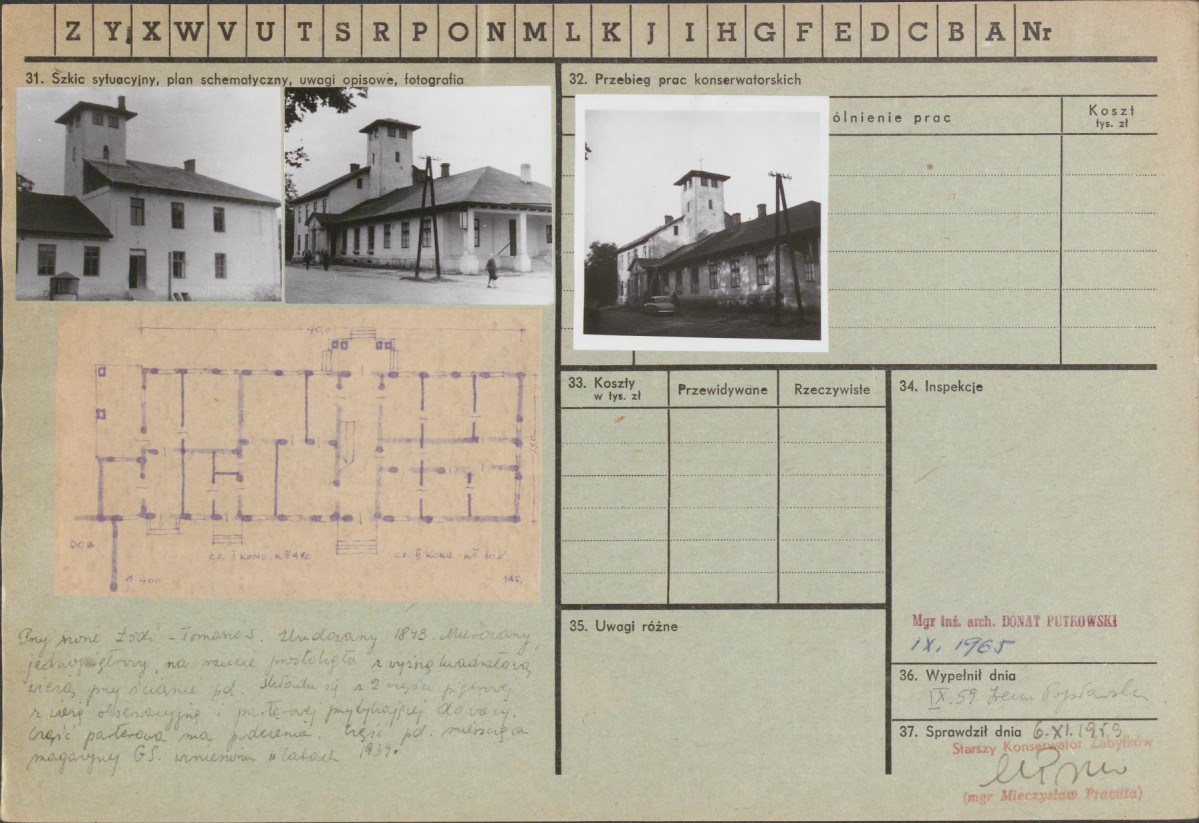 Z Y X W V U T S R P O N M L K J I H G F E D C B A Nr
31. Szkic sytuacyjny, plan schematyczny, uwagi opisowe, fotografia
32. Przebieg prac konserwatorskich
ólnienie prac
Koszt
tys. zł
40,0
DOB.
cz. I KOND.
cz. II KOND.
1:400
33. Koszty
w tys. zł
Przewidywane
Rzeczywiste
34. Inspekcje
35. Uwagi różne
Przy szosie Łódź - Tomasz. Zbudowany 1843. Murowany,
jednopiętrowy, na rzucie prostokąta z wyższą kwadratową
wieżą przy ścianie pd. Składa się z 2 części piętrowej
z wieżą obserwacyjną i parterowej
Część parterowa ma podcienia. Część pd. mieszcząca
magazyny GS. wzniesiona w latach 1939.
Mgr inż. arch. DONAT PUTKOWSKI
IX. 1965
36. Wypełnił dnia
IX.59
37. Sprawdził dnia 6.XI.1959
Starszy Konserwator Zabytków
(mgr Mieczysław Pracuta)